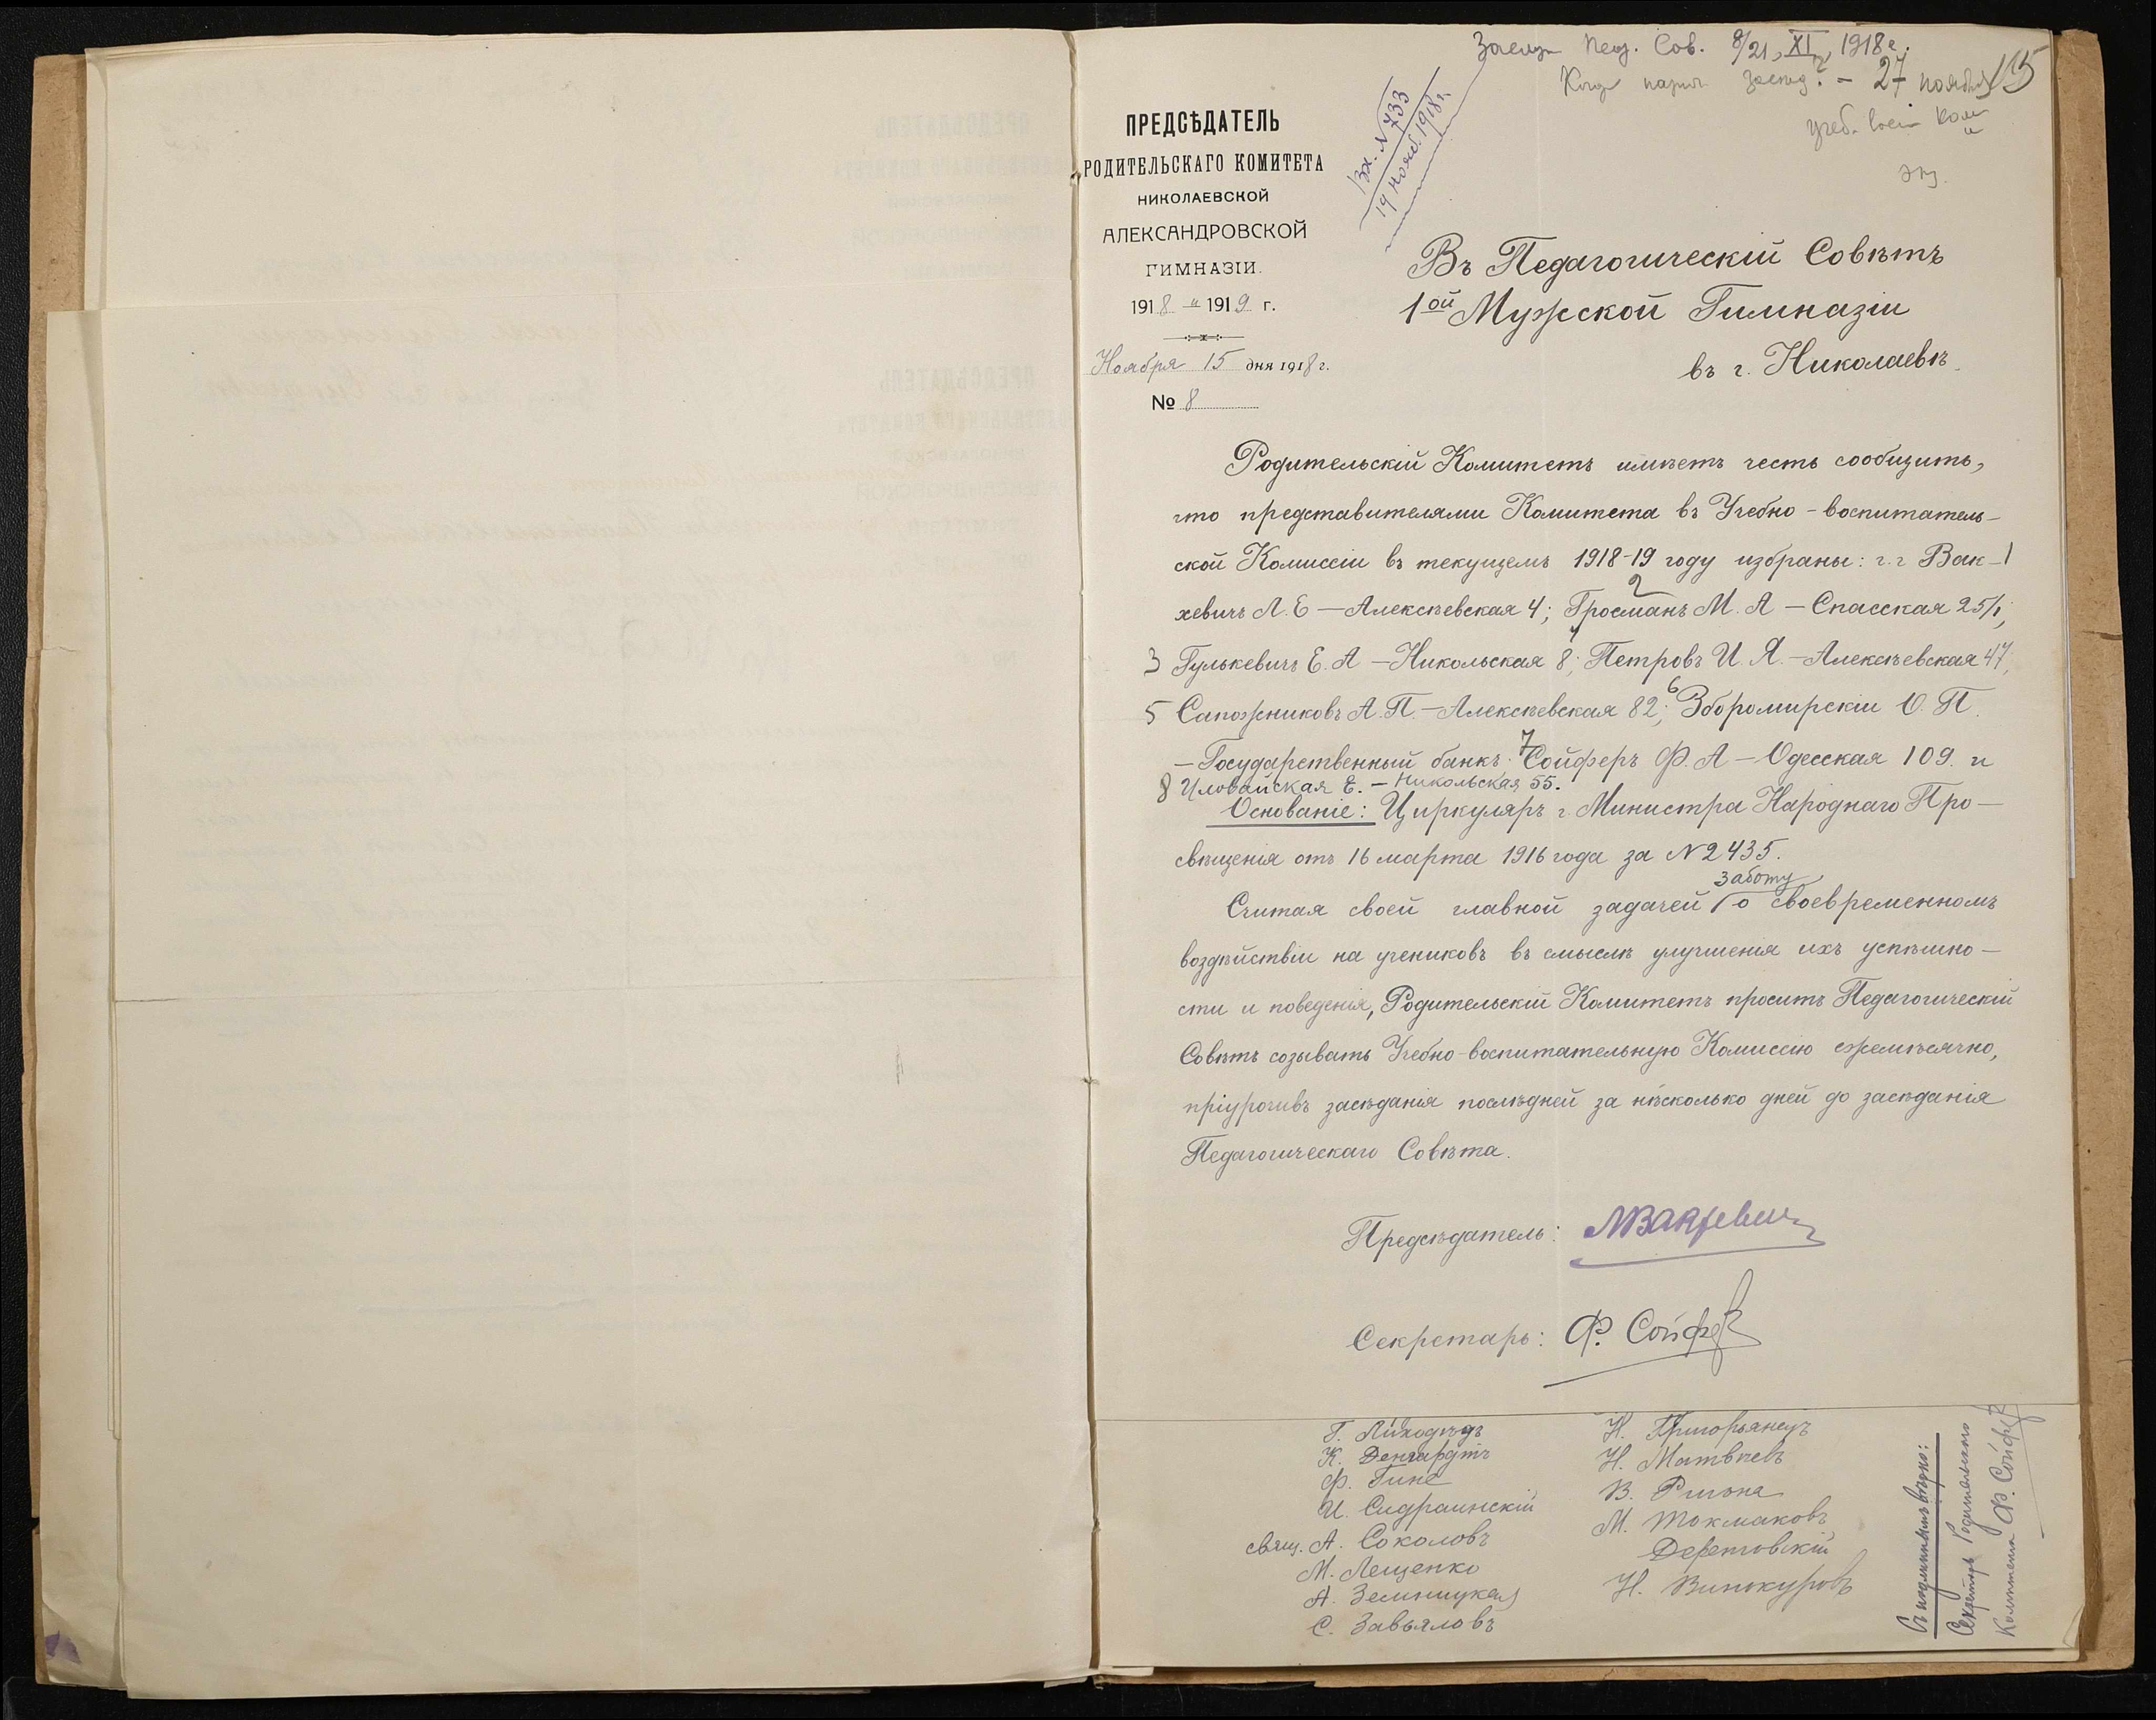 Засѣд. Пед. Сов. 8/21, XI, 1918 г.
засѣд.? – 27 ноября
15
учеб. восп. Ком
Вх. N 733
19 нояб. 1918 г.
ПРЕДСѢДАТЕЛЬ
РОДИТЕЛЬСКАГО КОМИТЕТА
НИКОЛАЕВСКОЙ
АЛЕКСАНДРОВСКОЙ
ГИМНАЗІИ.
1918 – 1919 г.
Ноября 15 дня 1918 г.
№ 8
Въ Педагогическій Совѣтъ
1ой Мужской Гимназіи
въ г. Николаевѣ.
Родительскій Комитетъ имѣетъ честь сообщить,
что представителями Комитета въ Учебно-воспитатель-
ской Комиссіи въ текущемъ 1918-19 году избраны: г.г Вак- 1
хевичъ Л. Е – Алексѣевская 4; 2 Гросманъ М. А – Спасская 25/1;
3 Гулькевичъ Е. А – Никольская 8; 4 Петровъ И. Я. – Алексѣевская 47,
5 Сапожниковъ А. П. – Алексѣевская 82; 6 Збромирскій О. П.
– Государственный банкъ. 7 Сойферъ Ф. А – Одесская 109. и
8 Иловайская Е. – Никольская 55.
Основаніе: Циркуляръ г. Министра Народнаго Про-
свѣщенія отъ 16 марта 1916 года за N 2435.
Считая своей главной задачей заботу о своевременномъ
воздѣйствіи на учениковъ въ смыслѣ улучшенія ихъ успѣшно-
сти и поведенія, Родительскій Комитетъ проситъ Педагогическій
Совѣтъ созывать Учебно-воспитательную Комиссію ежемѣсячно,
пріурочивъ засѣданія послѣдней за нѣсколько дней до засѣданія
Педагогическаго Совѣта.
Предсѣдатель: ЛВакхевичъ
Секретарь: Ф. Сойфер
Г. Лиходѣдъ
К. Денгардтъ
Ф. Гине
И.
свящ. А. Соколовъ
М. Лещенко
А. Земницкая
С. Завьяловъ
Н. Григорьянцъ
Н. Матвѣевъ
В.
М. Токмаковъ
Н. Винокуровъ
Съ подлиннымъ вѣрно:
Секретарь Родительскаго
Комитета Ф. Сойфер